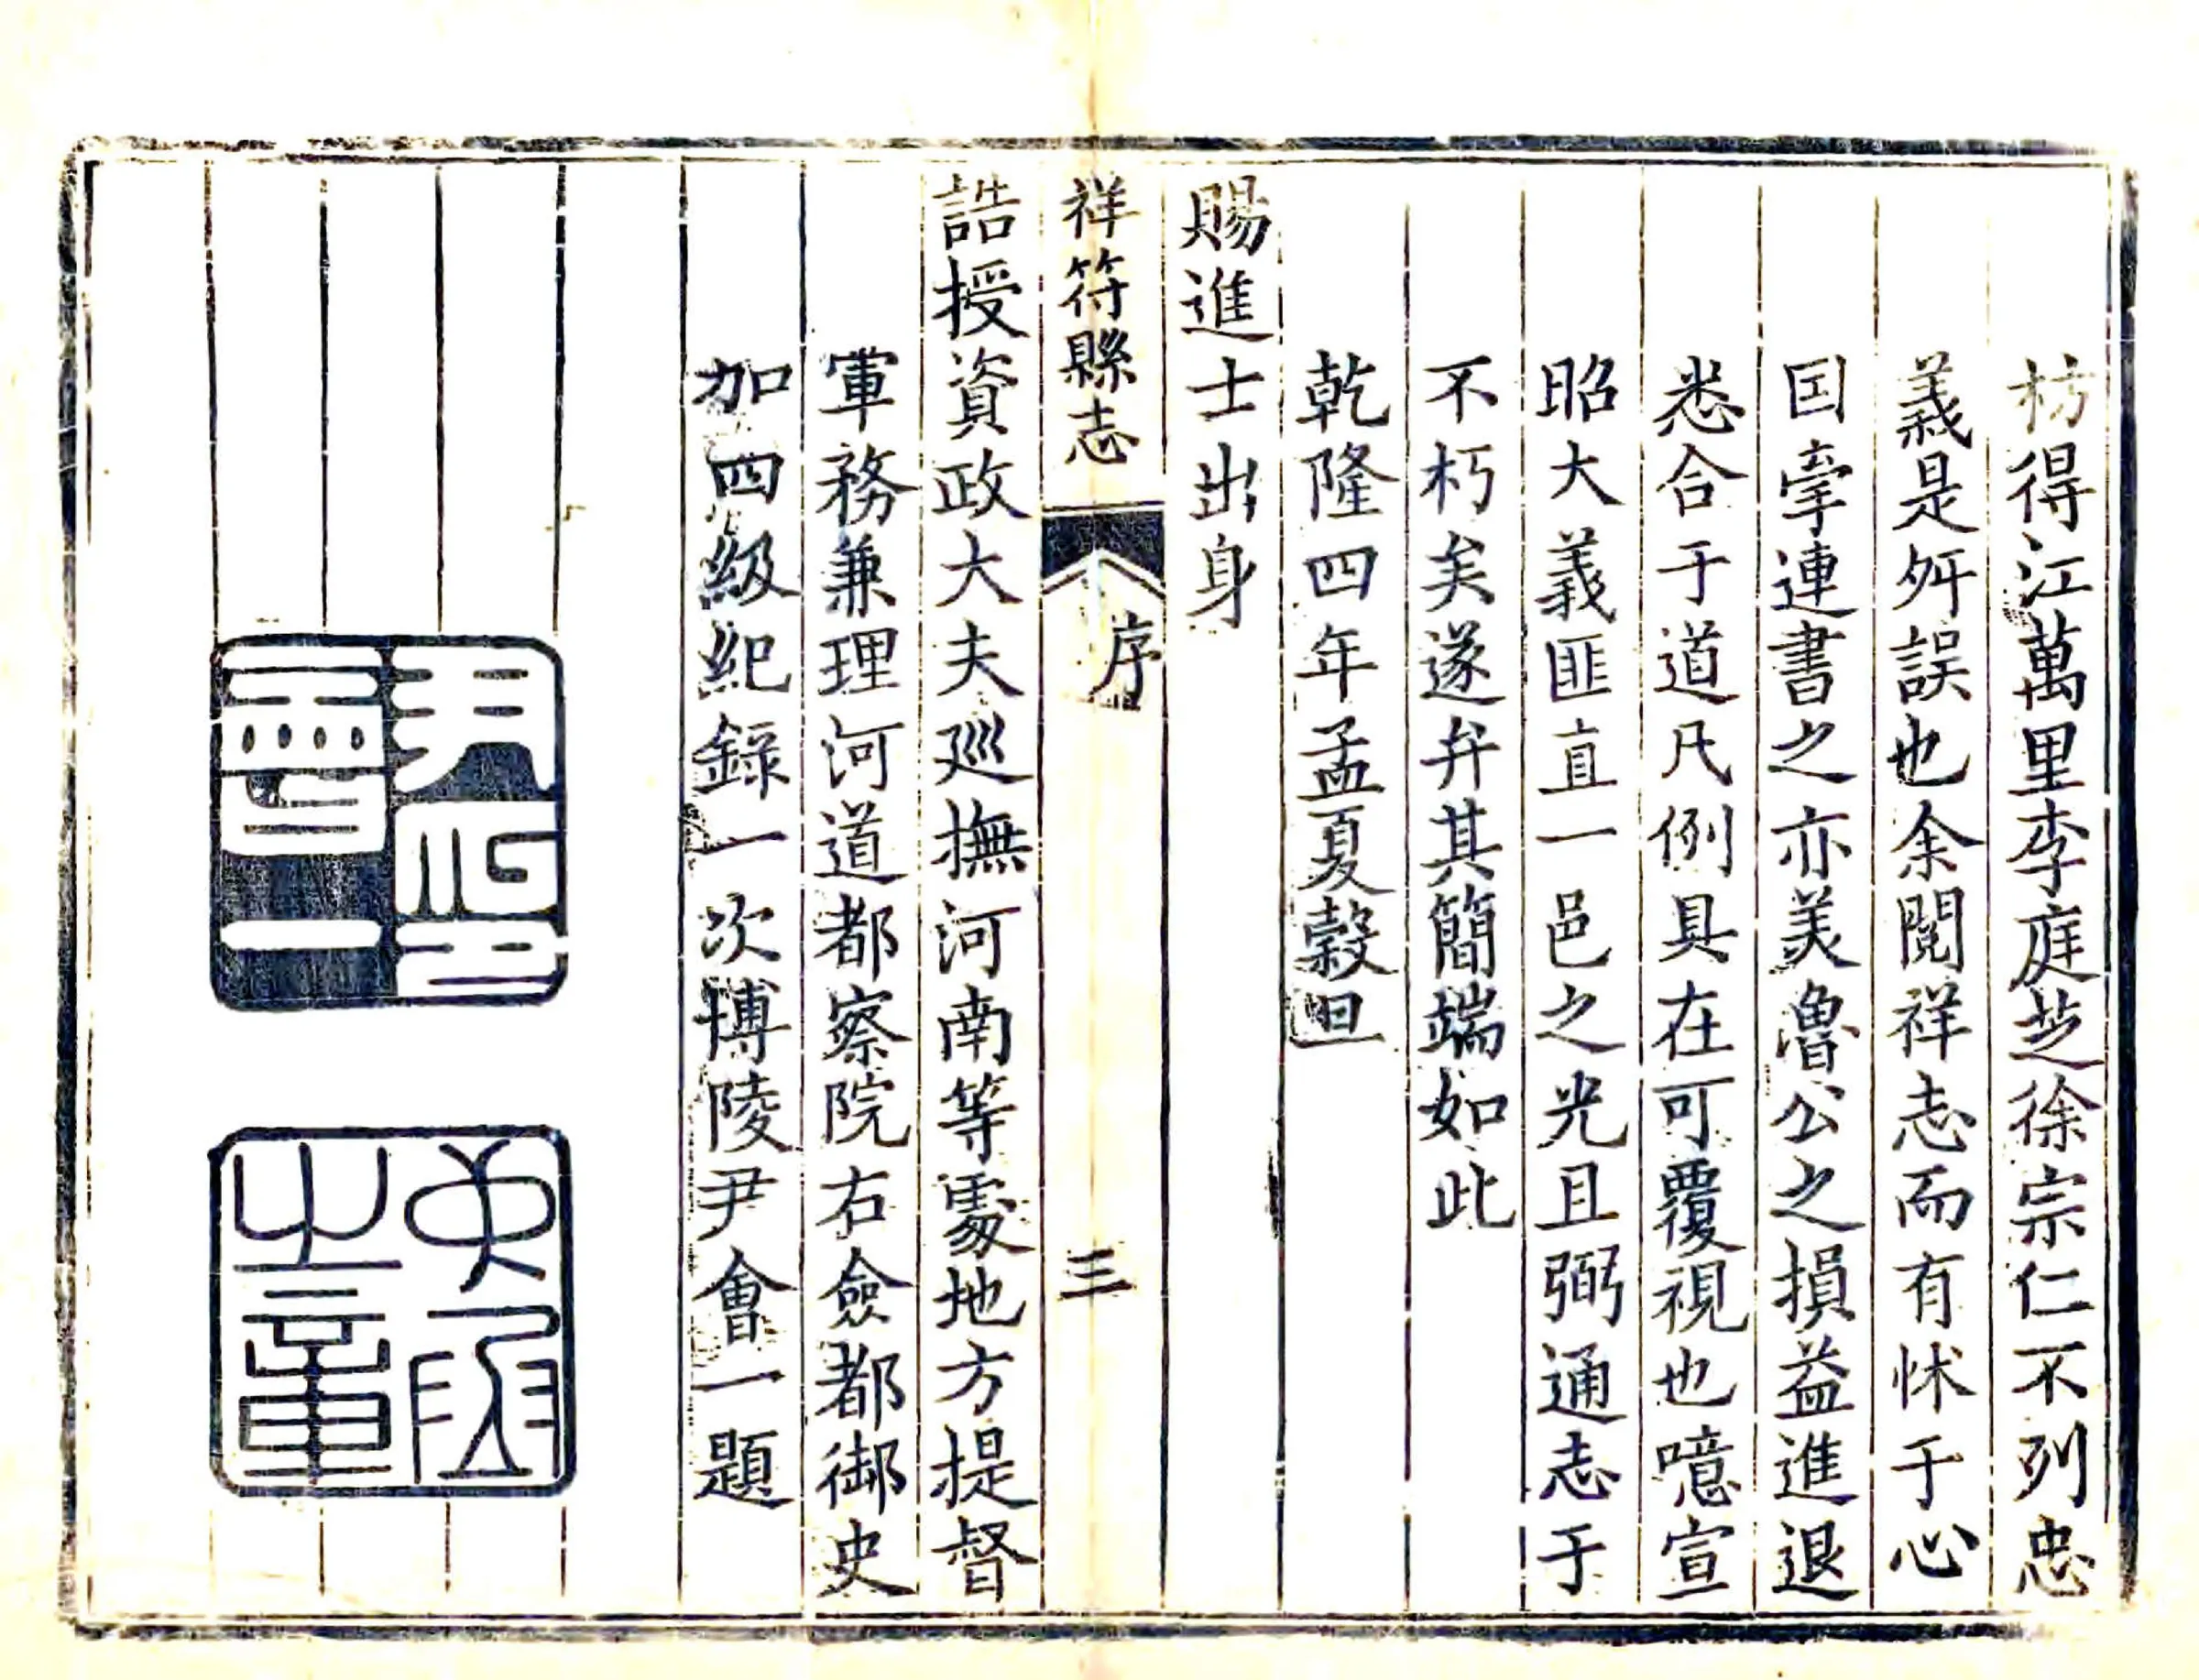 枋得江萬里李庭芝徐宗仁不列忠
義是舛誤也余閱祥志而有怵于心
因牽連書之亦美魯公之損益進退
悉合于道凡例具在可覆視也噫宣
昭大義匪直一邑之光且弼通志于
不朽矣遂弁其簡端如此
乾隆四年孟夏穀旦
賜進士出身
祥符縣志
序
三
誥授資政大夫巡撫河南等處地方提督
軍務兼理河道都察院右僉都御史
加四級紀錄一次博陵尹會一題
尹印
會一
之章